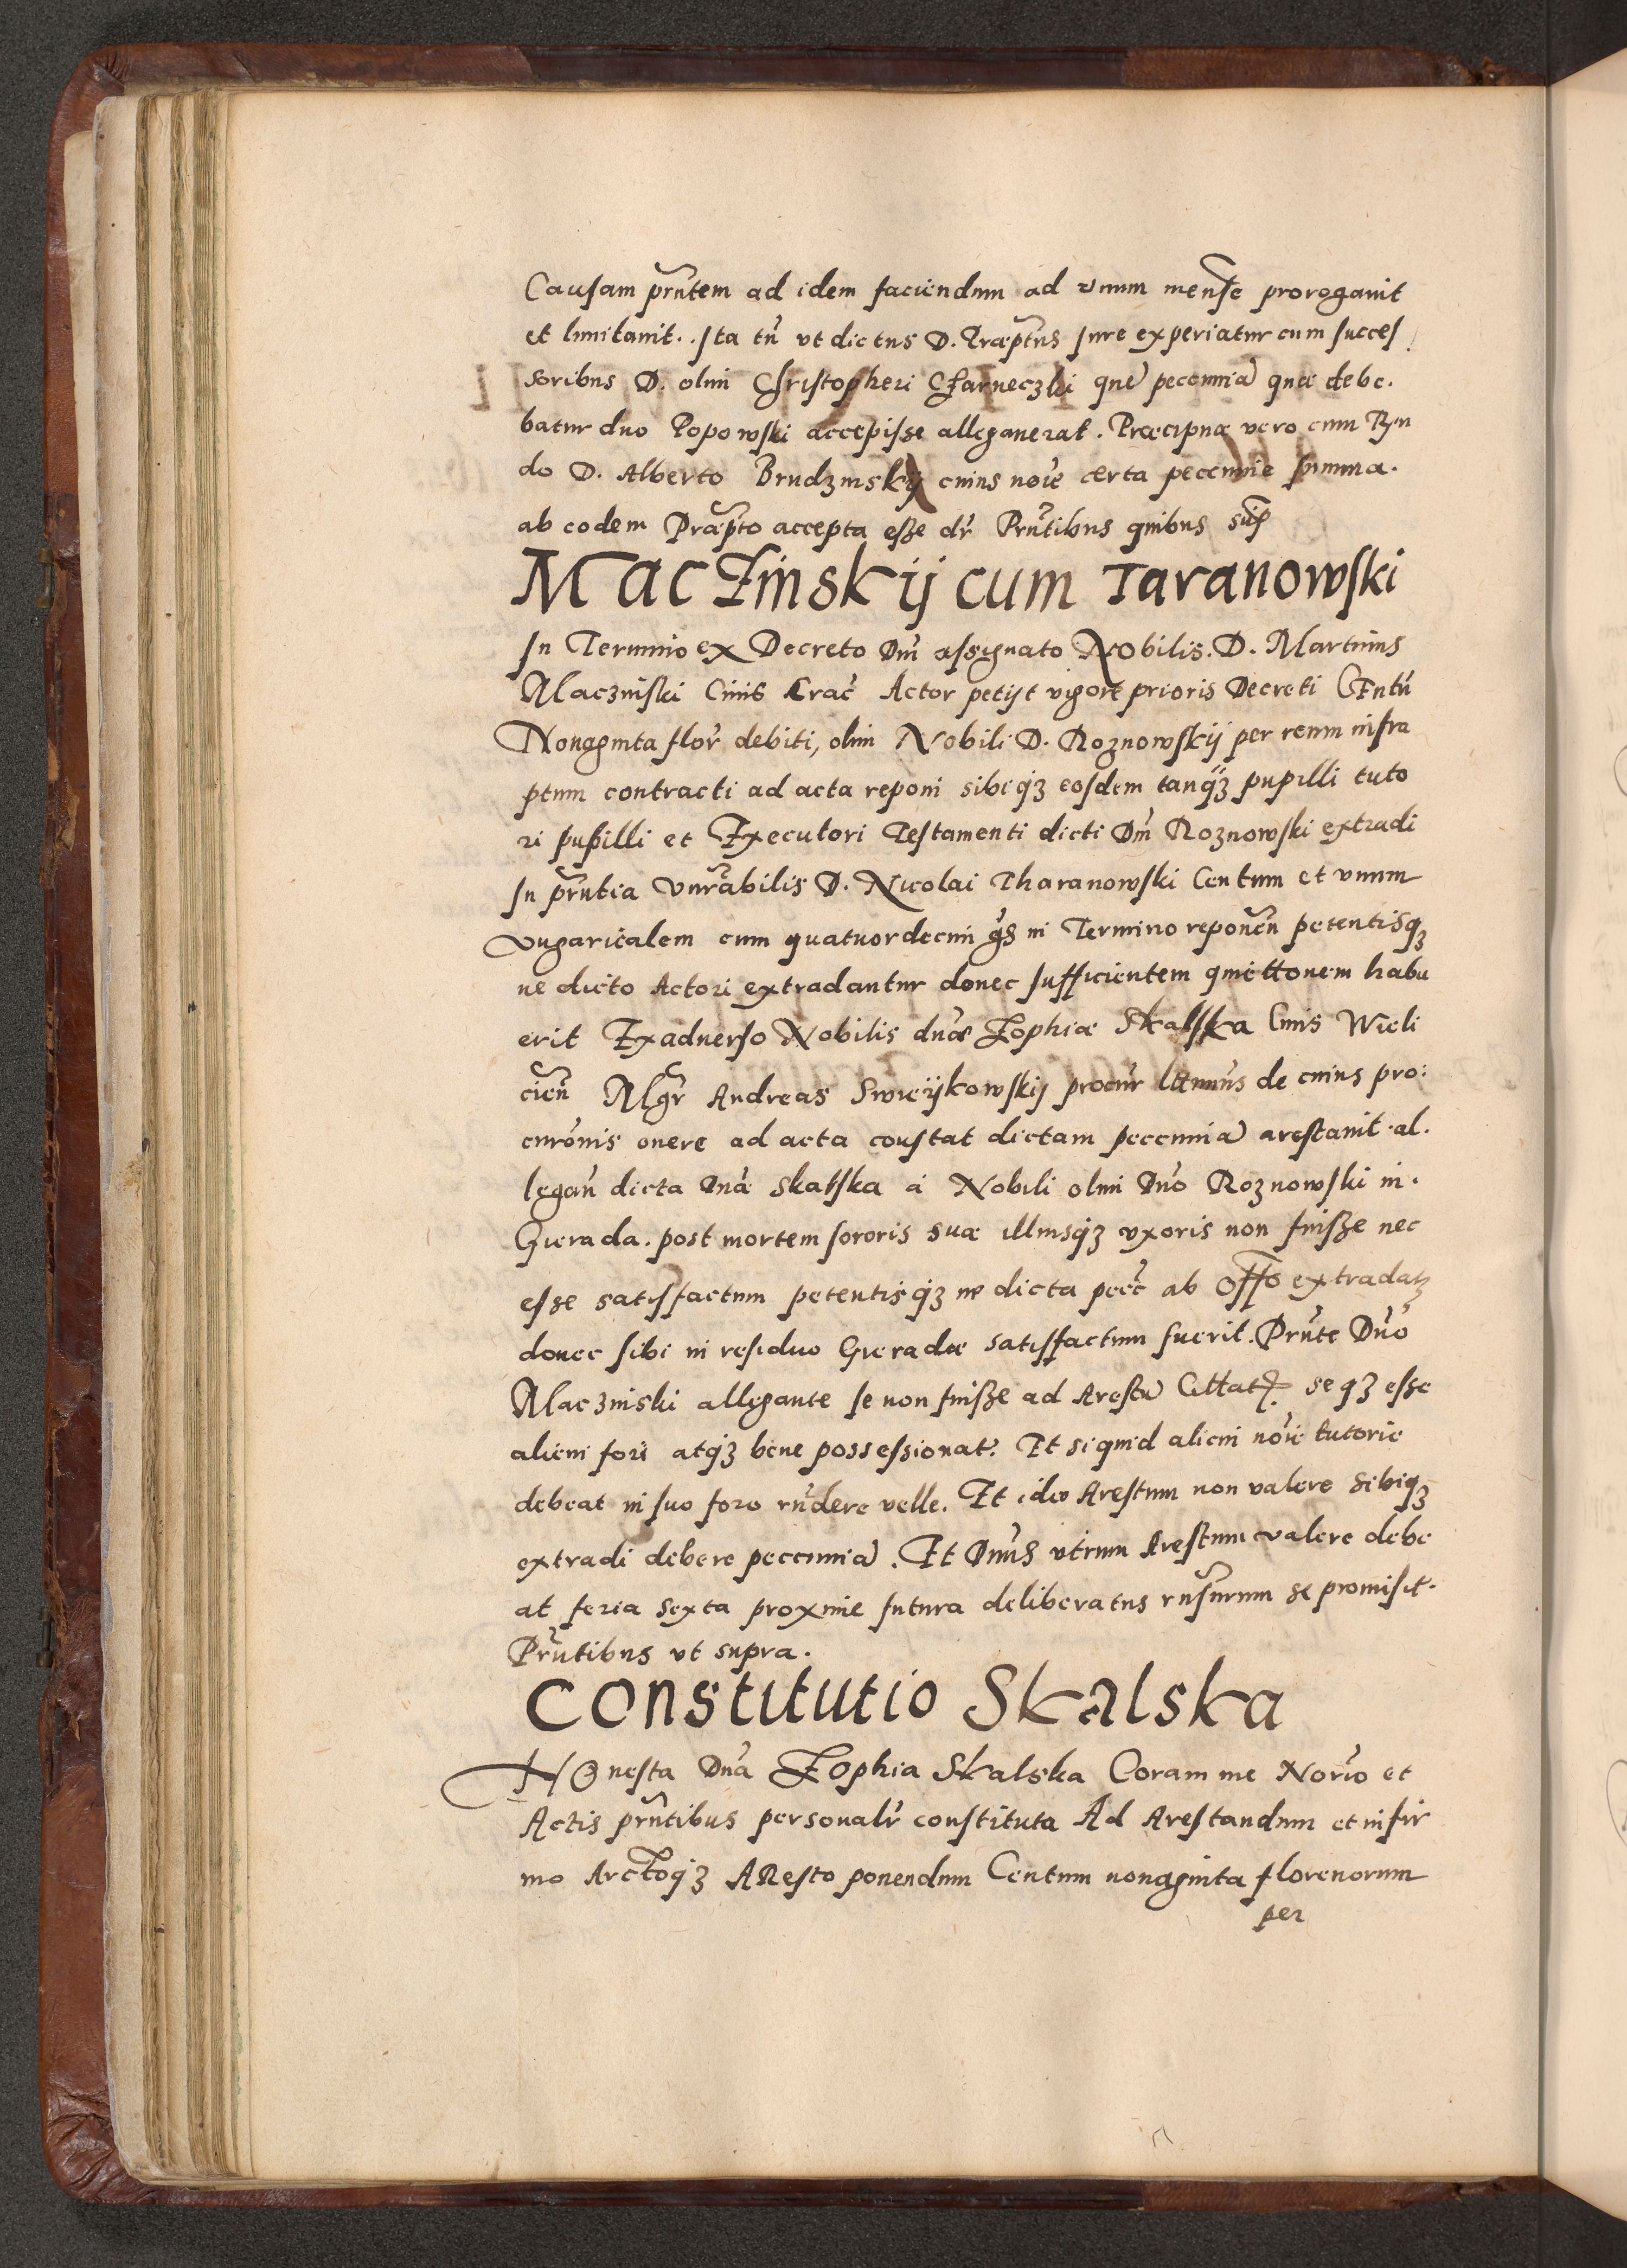 Causam prñtem ad idem faciendum ad vnum mense prorogauit
et limitauit. Ita tñ vt dictus D. Præptus iure experiatur cum succes
soribus D. olim Christopheri Czarneczki que pecunniã quæ debe.
batur dno Popowski accepisse alleganerat. Præcipuæ vero cum Rṽn
do D. Alberto Brudzinskij cuius noĩe certa pecunnie summa.
ab eodem Præpto accepta esse dr̃ Prñtibus quibus sup̃
Maczinskij cum Taranowski
In Termino ex Decreto Dnĩ assignato Nobilis. D. Martinus
Maczinski Ciuis Crac̃ Actor petijt vigore prioris Decreti Centũ
Nonaginta flor̃ debiti, olim Nobili D. Roznowskij per reum infra
ptum contracti ad acta reponi sibi qz eosdem tanqz pupilli tuto
ri pupilli et Executori Testamenti dicti Dnĩ Roznowski extradi
In prñtia Vnr̃abilis D. Nicolai Tharanowski Centum et vnum
vngaricalem cum quatuordecim gr̃s in Termino reponeñ petentisqz
ne dicto Actori extradantur donec sufficientem quiettonem habu
erit Exaduerso Nobilis dnæ Zophiæ Skalska Ciuis Wieli
cieñ Mgr̃ Andreas Swieijkowskij procur̃ lttimus de cuius pro:
curoñis onere ad acta constat dictam pecunniã arestauit al.
legañ dicta Dnã Skalska a Nobili olim Dnõ Roznowski in.
Gierada. post mortem sororis suæ illiusqz vxoris non fuisse nec
esse satisfactum petentisqz ne dicta pecc̃ ab Offo extradatz
donec sibi in residuo Gieradæ satisfactum fuerit. Prñte Dnõ
Maczinski allegante se non fuisse ad Arestũ Cittatu se qz esse
alieni fori atqz bene possessionat. Et si quid alieni noĩe tutorie
debeat in suo foro rñdere velle. Et ideo Arestum non valere sibiqz
extradi debere pecunniã. Et Dnus vtrum Arestum valere debe
at feria sexta proxime futura deliberatus rnsurum se promisit.
Prñtibus vt supra.
Constitutio Skalska
Honesta Dnã Zophia Skalska Coram me Norĩo et
Actis prñtibus personalr̃ constituta Ad Arestandum et in fir
mo Arctoqz ARესto ponendum Centum nonaginta florenorum
per